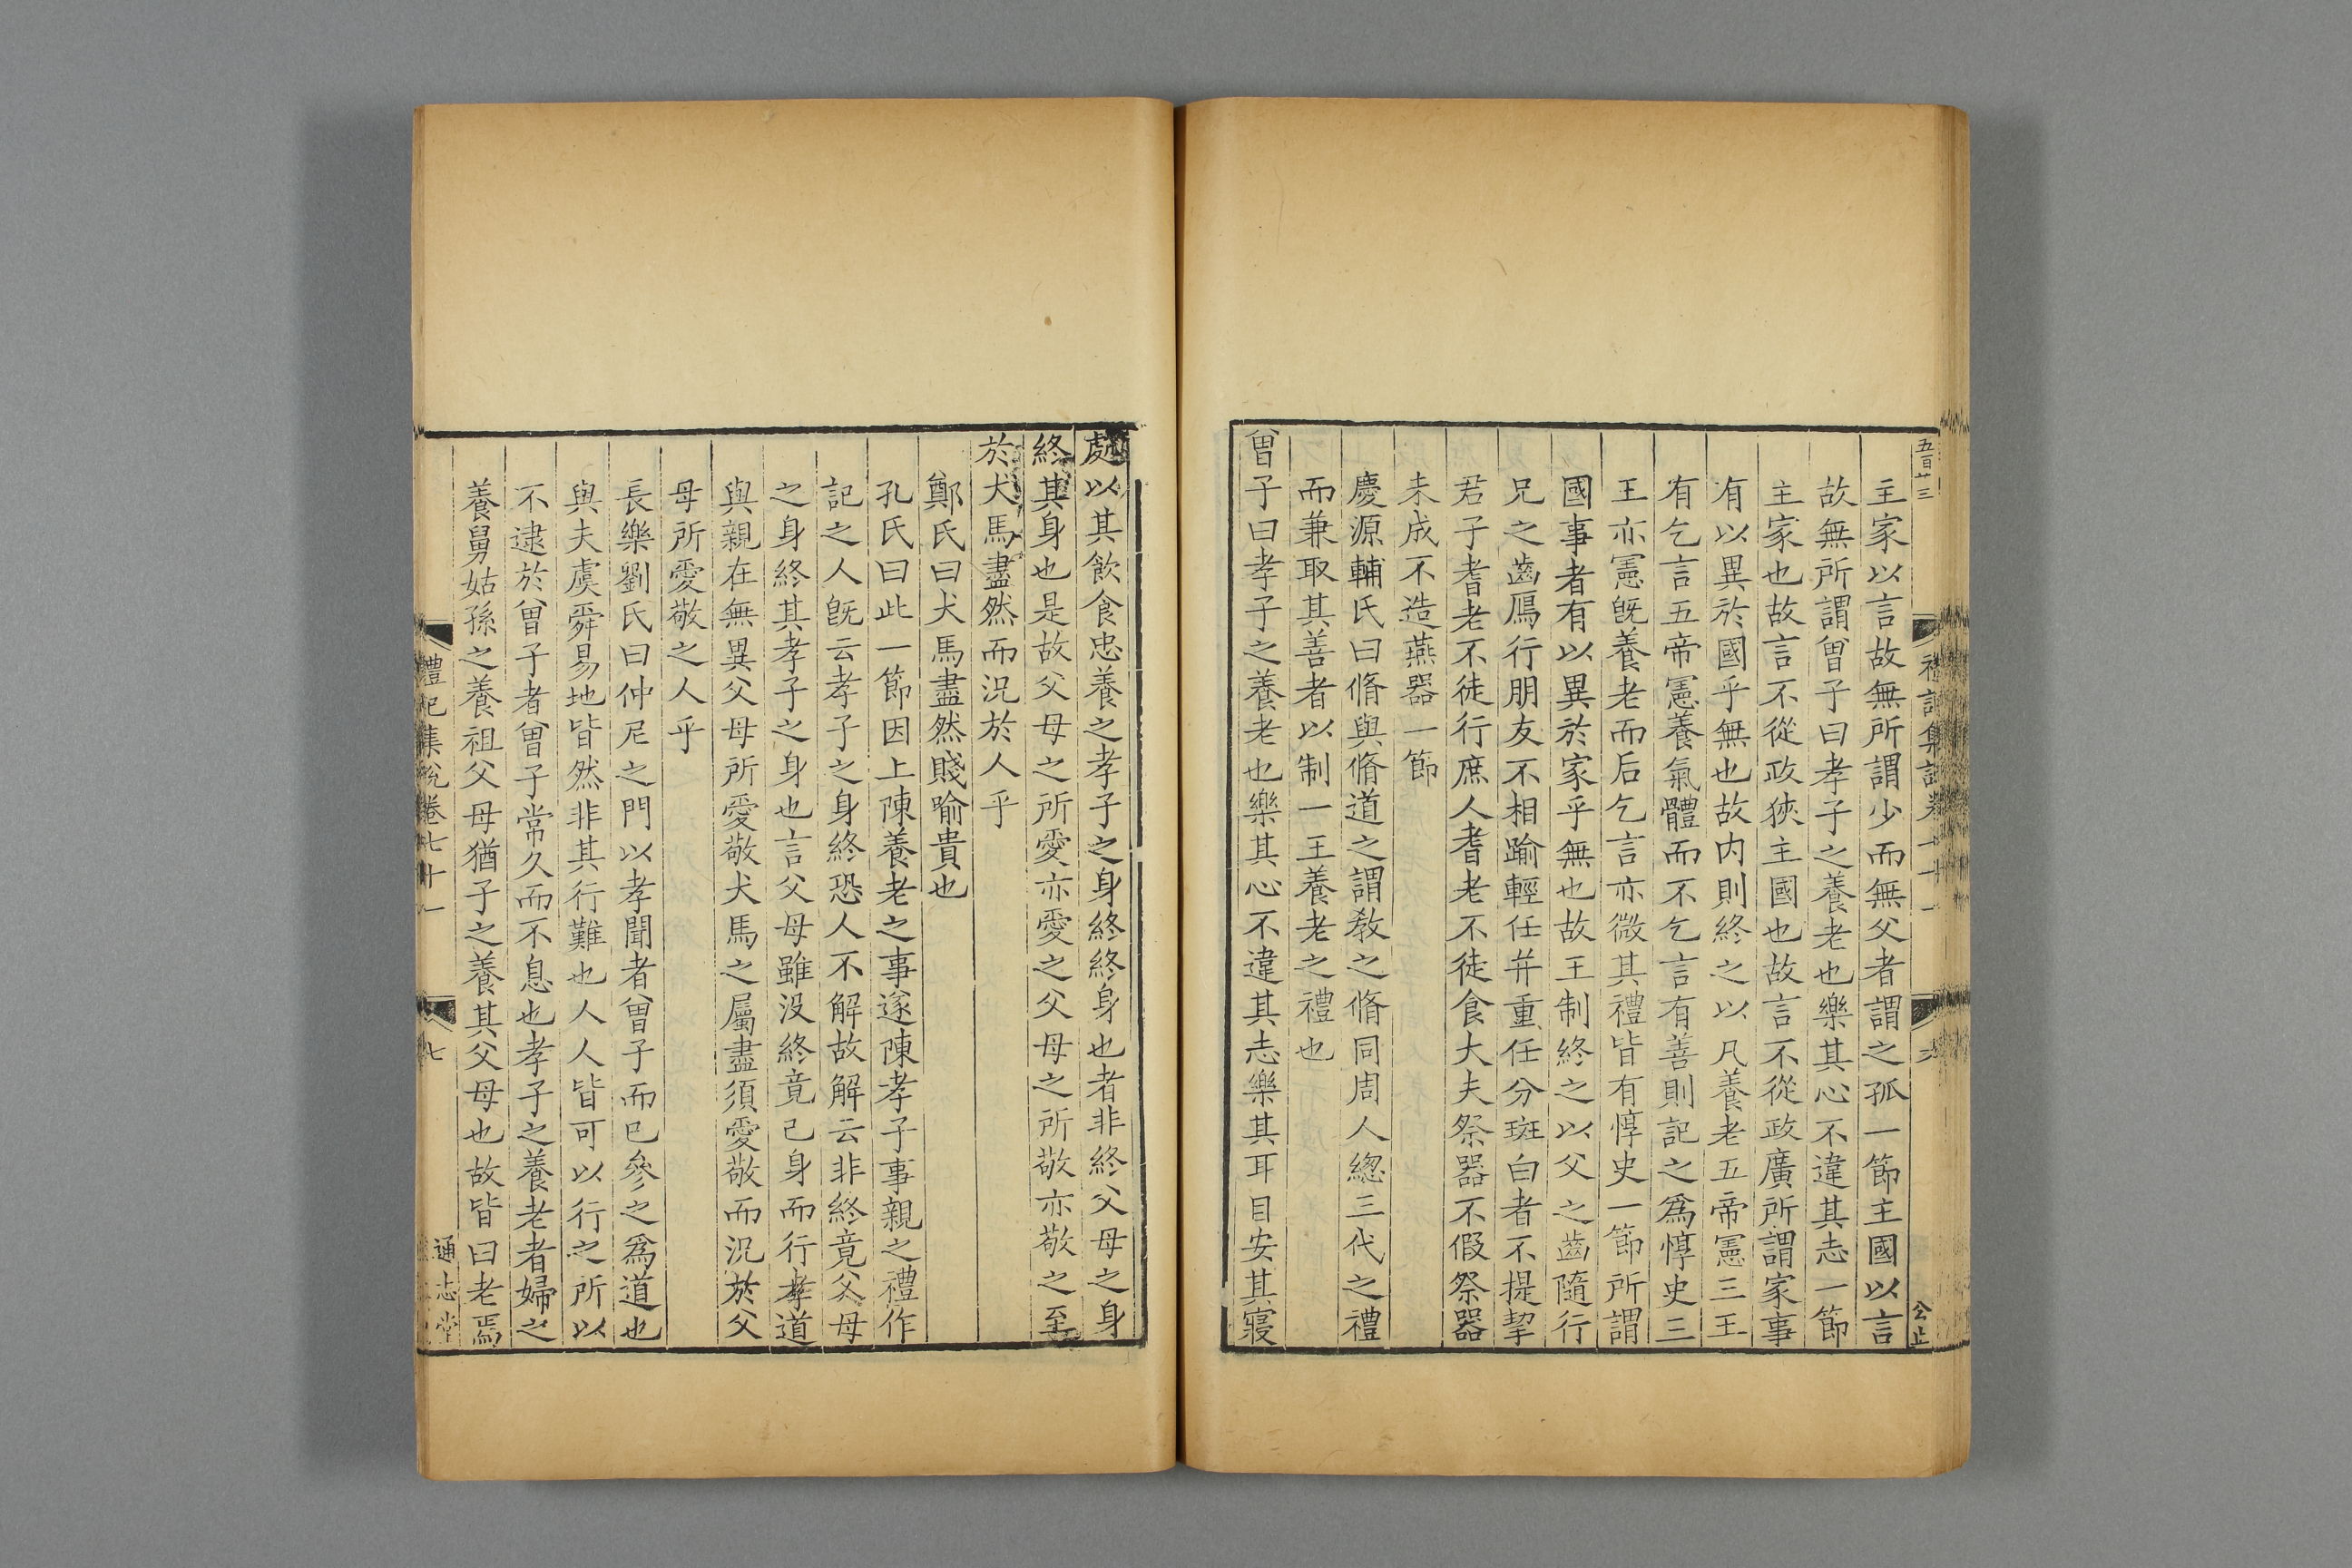 五百廿三
主家以言故無所謂少而無父者謂之孤一節主國以言
故無所謂曾子曰孝子之養老也樂其心不違其志一節
主家也故言不從政狹主國也故言不從政廣所謂家事
有以異於國乎無也故内則終之以凡養老五帝憲三王
有乞言五帝憲養氣體而不乞言有善則記之爲惇史三
王亦憲旣養老而后乞言亦微其禮皆有惇史一節所謂
國事者有以異於家乎無也故王制終之以父之齒隨行
兄之齒鴈行朋友不相踰輕任并重任分斑白者不提挈
君子耆老不徒行庶人耆老不徒食大夫祭器不假祭器
未成不造燕器一節
慶源輔氏曰脩與脩道之謂教之脩同周人緫三代之禮
而兼取其善者以制一王養老之禮也
曾子曰孝子之養老也樂其心不違其志樂其耳目安其寢
處以其飲食忠養之孝子之身終終身也者非終父母之身
終其身也是故父母之所愛亦愛之父母之所敬亦敬之至
於犬馬盡然而況於人乎
鄭氏曰犬馬盡然賤喻貴也
孔氏曰此一節因上陳養老之事遂陳孝子事親之禮作
記之人旣云孝子之身終恐人不解故解云非終竟父母
之身終其孝子之身也言父母雖没終竟己身而行孝道
與親在無異父母所愛敬犬馬之屬盡須愛敬而況於父
母所愛敬之人乎
長樂劉氏曰仲尼之門以孝聞者曾子而已參之爲道也
與夫虞舜易地皆然非其行難也人人皆可以行之所以
不逮於曾子者曾子常久而不息也孝子之養老者婦之
養舅姑孫之養祖父母猶子之養其父母也故皆曰老焉
禮記集說卷七十一
七
通志堂